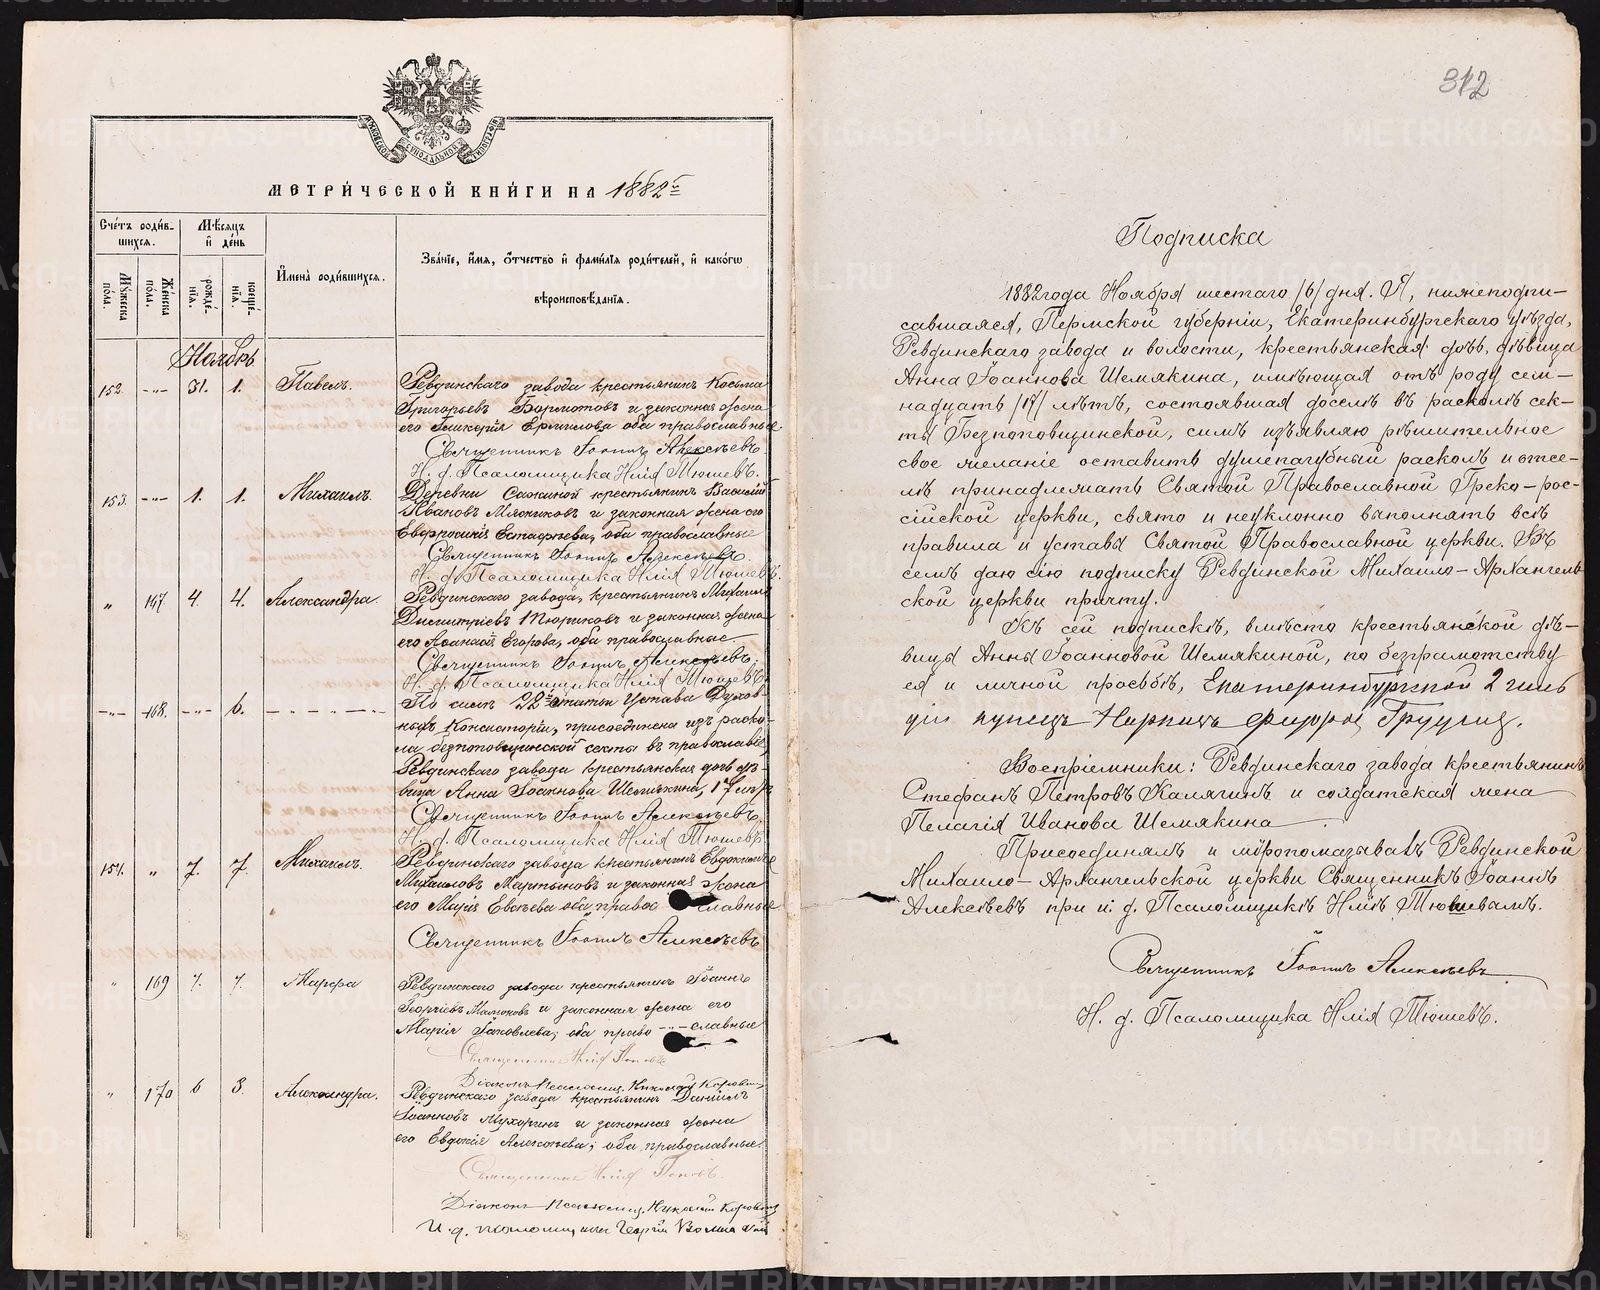 МЕТРИ́ЧЕСКОЙ КНИ́ГИ НА 1882 г.
Сче́тъ роди́вшихся.
Мѣсяцъ и де́нь
Му́жеска по́ла.
Же́нска по́ла.
рожде́нїя.
креще́нїя.
И҆мена̀ роди́вшихся.
Зва́нїе, и҆́мя, ѻ҆́тчество и҆ фами́лїя роди́телей, и҆ како́гѡ
вѣроисповѣ́данїя.
Ноябрь
152 31. 1. Павелъ. Ревдинскаго завода крестьянинъ Косьма
Григорьевъ и законная жена
его Гликерія Ермилова оба православные
Священникъ Іоаннъ Алексѣевъ
И. д. Псаломщика Илія Тюшевъ.
153. 1. 1. Михаилъ. Деревни крестьянинъ Василій
Ивановъ Мясниковъ и законная жена его
Евфросинія Естафьева, оба православные
Священникъ Іоаннъ Алексѣевъ
И. д. Псаломщика Илія Тюшевъ.
" 167 4. 4. Александра. Ревдинскаго завода, крестьянинъ Михаилъ
Димитріевъ Тюриковъ и законная жена
его Аѳанасія Егорова, оба православные
Священникъ Іоаннъ Алексѣевъ.
И. д. Псаломщика Илія Тюшевъ
168. 6. По силѣ 22й статьи Устава Духов-
ныхъ Консисторій, присоединена изъ раско-
ла безпоповщинской секты въ православіе,
Ревдинскаго завода крестьянская дочь дѣ-
вица Анна Іоаннова Шемякина, 17 лѣтъ
Священникъ Іоаннъ Алексѣевъ,
И. д. Псаломщика Илія Тюшевъ
154. " 7. 7. Михаилъ. Ревдинскаго завода крестьянинъ Евдокимъ
Михаиловъ Мартыновъ и законная жена
его Марія Евсѣева оба православные
Священникъ Іоаннъ Алексѣевъ
" 169 7. 7. Марѳа Ревдинскаго завода крестьянинъ Іоаннъ
Георгіевъ Мамоновъ и законная жена его
Марія Іаковлева, оба право---славные
Священникъ Илія Поповъ
Діаконъ Псаломщ. Николай
" 170 6 8. Александра. Ревдинскаго завода крестьянинъ Даніилъ
Іоанновъ Мухоринъ и законная жена
его Евдокія Алексѣева, оба православные
Священникъ Илія Поповъ.
Діаконъ Псаломщ. Николай
И. д. псаломщика Георгій
312
Подписка
1882 года Ноября шестаго /6/ дня. Я, нижеподпи-
савшаяся, Пермской губерніи, Екатеринбургскаго уѣзда,
Ревдинскаго завода и волости, крестьянская дочь, дѣвица
Анна Іоаннова Шемякина, имѣющая отъ роду сем-
надцать /17/ лѣтъ, состоявшая доселѣ въ расколѣ сек-
ты Безпоповщинской, симъ изъявляю рѣшительное
свое желаніе оставить душепагубный расколъ и отсе-
лѣ принадлежать Святой Православной Греко-рос-
сійской церкви, свято и неуклонно выполнять всѣ
правила и уставы Святой Православной церкви. Въ
семъ даю сію подписку Ревдинской Михаило-Архангель
ской церкви причту.
Къ сей подпискѣ, вмѣсто крестьянской дѣ-
вицы Анны Іоанновой Шемякиной, по безграмотству
ея и личной просьбѣ, Екатеринбургской 2 гиль
діи купецъ
Воспріемники: Ревдинскаго завода крестьянинъ
Стефанъ Петровъ Калягинъ и солдатская жена
Пелагія Иванова Шемякина.
Присоединялъ и мѵропомазывалъ Ревдинской
Михаило-Архангельской церкви Священникъ Іоаннъ
Алексѣевъ при и. д. Псаломщикѣ Иліѣ Тюшевымъ.
Священникъ Іоаннъ Алексѣевъ
И. д. Псаломщика Илія Тюшевъ.
METRIKI.GASO-URAL.RU